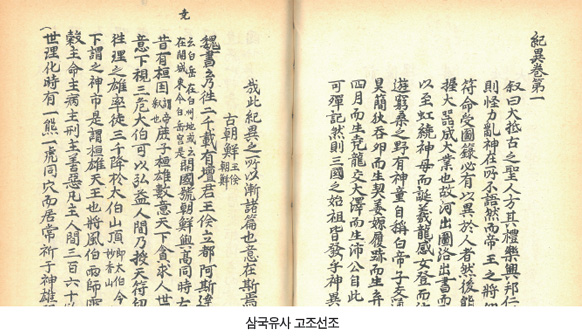 紀異卷第一
敍曰大抵古之聖人方其禮樂興邦仁
則怪力亂神在所不語然而帝王之將
符命受圖籙必有以異於人者然後能
握大器成大業也故河出圖洛出書而
以至虹繞神母而誕羲龍感女登而
遊窮桑之野有神童自稱白帝子交通
昊簡狄吞卵而生契姜嫄履跡而生弃
四月而生堯龍交大澤而生沛公自此
可殫記然則三國之始祖皆發乎神異
哉此紀異之所以漸諸篇也意在斯焉
古朝鮮王儉朝鮮
堯
魏書云乃往二千載有壇君王儉立都阿斯達
云白岳在白州地或云在開城東今白岳宮是開國號朝鮮與高同時古
昔有桓国謂帝釋也庶子桓雄數意天下貪求人世
意下視三危太伯可以弘益人間乃授天符印
徃理之雄率徒三千降於太伯山頂即太伯今妙香山
下謂之神市是謂桓雄天王也將風伯雨師雲
穀主命主病主刑主善惡凡主人間三百六十
世理化時有一熊一虎同穴而居常祈于神雄
삼국유사 고조선조